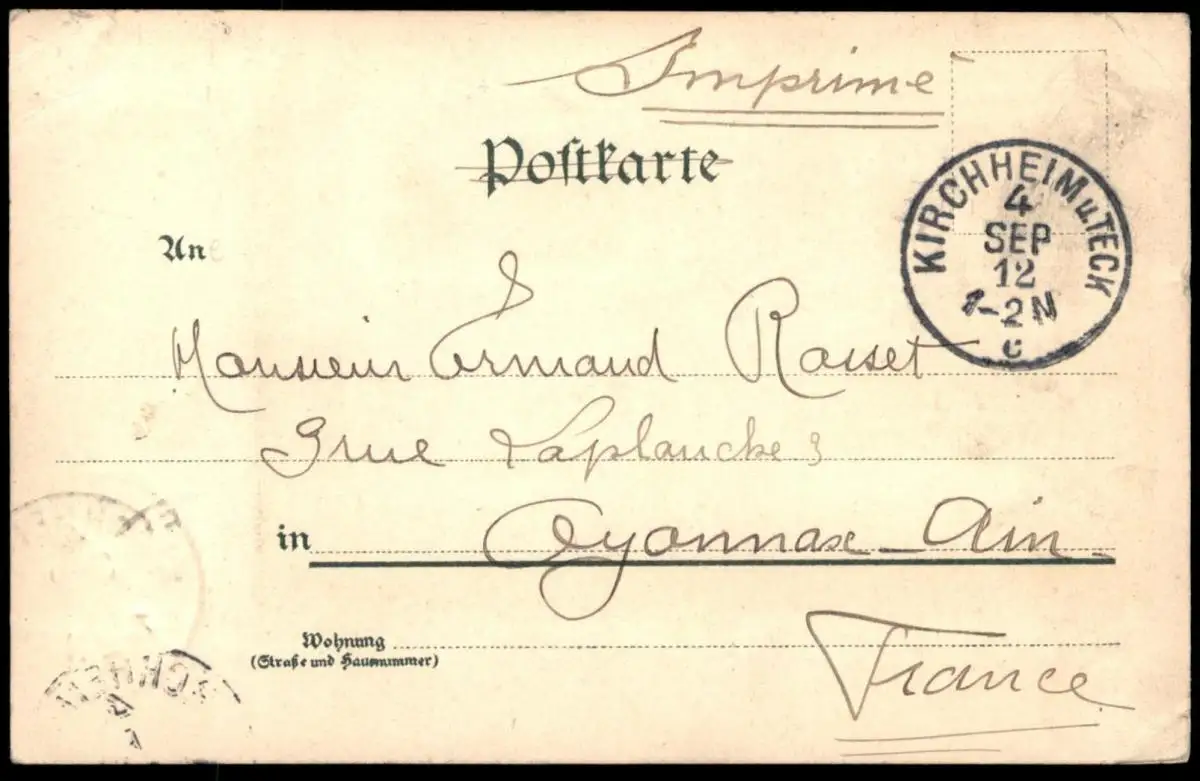 Imprimé
Postkarte
KIRCHHEIM u. TECK
4
SEP
12
1-2N
c
An
Monsieur Armand Rosset
9 rue Laplanche 3
in Oyonnax - Ain -
Wohnung
(Straße und Hausnummer)
France
CHHEI